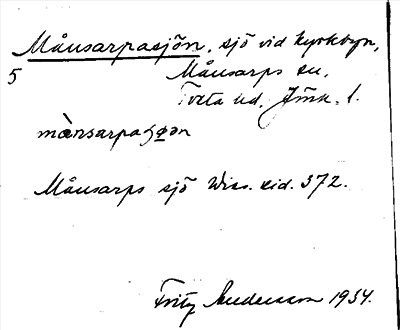 Månsarpasjön, sjö vid kyrkbyn,
5 Månsarps sn.
Tveta hd. Jmk. l.
mànsarpaʃøən
Månsarps sjö Wies. sid. 372.
Fritz Andersson 1934.